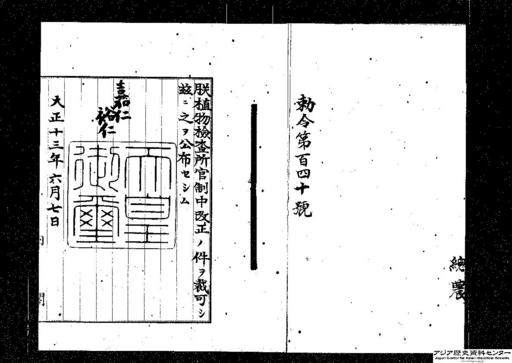 總農
勅令第百四十號
朕植物檢査所官制中改正ノ件ヲ裁可シ
玆ニ之ヲ公布セシム
嘉仁
裕仁
天皇御璽
大正十三年六月七日
内閣
アジア歴史資料センター
Japan Center for Asian Historical Records